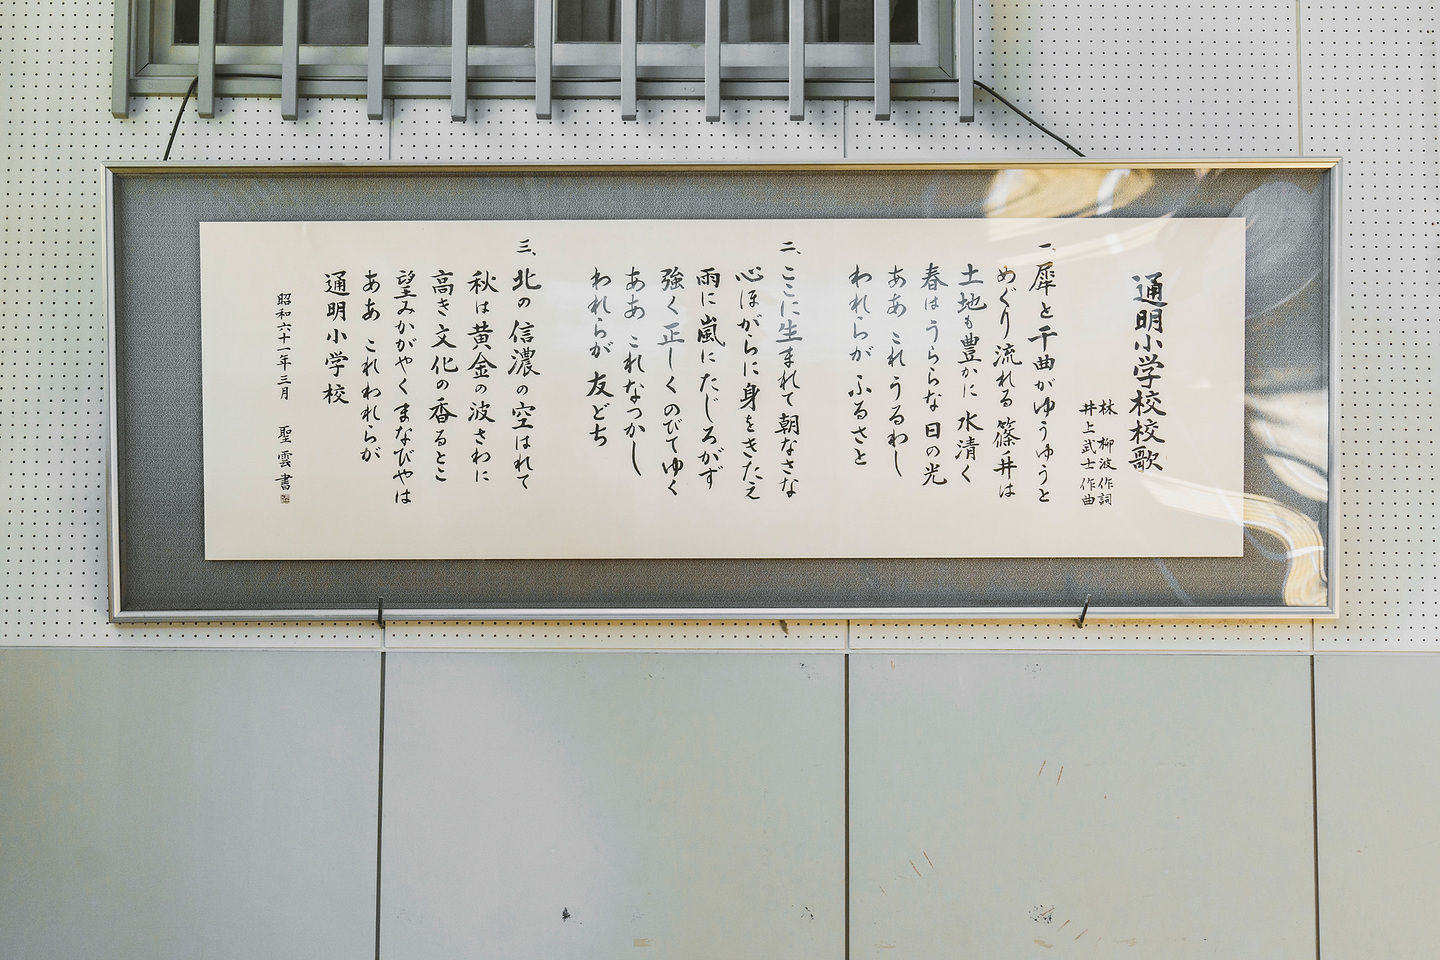 通明小学校校歌
林 柳波 作詞
井上武士 作曲
一、犀と千曲がゆうゆうと
めぐり流れる篠ノ井は
土地も豊かに 水清く
春はうららな日の光
ああ これうるわし
われらが ふるさと
二、ここに生まれて 朝なさな
心ほがらに身をきたえ
雨に嵐にたじろがず
強く正しくのびてゆく
ああ これなつかし
われらが 友どち
三、北の信濃の空はれて
秋は黄金の波さわに
高き文化の香るとこ
望みかがやく まなびやは
ああ これわれらが
通明小学校
昭和六十一年三月 聖雲書